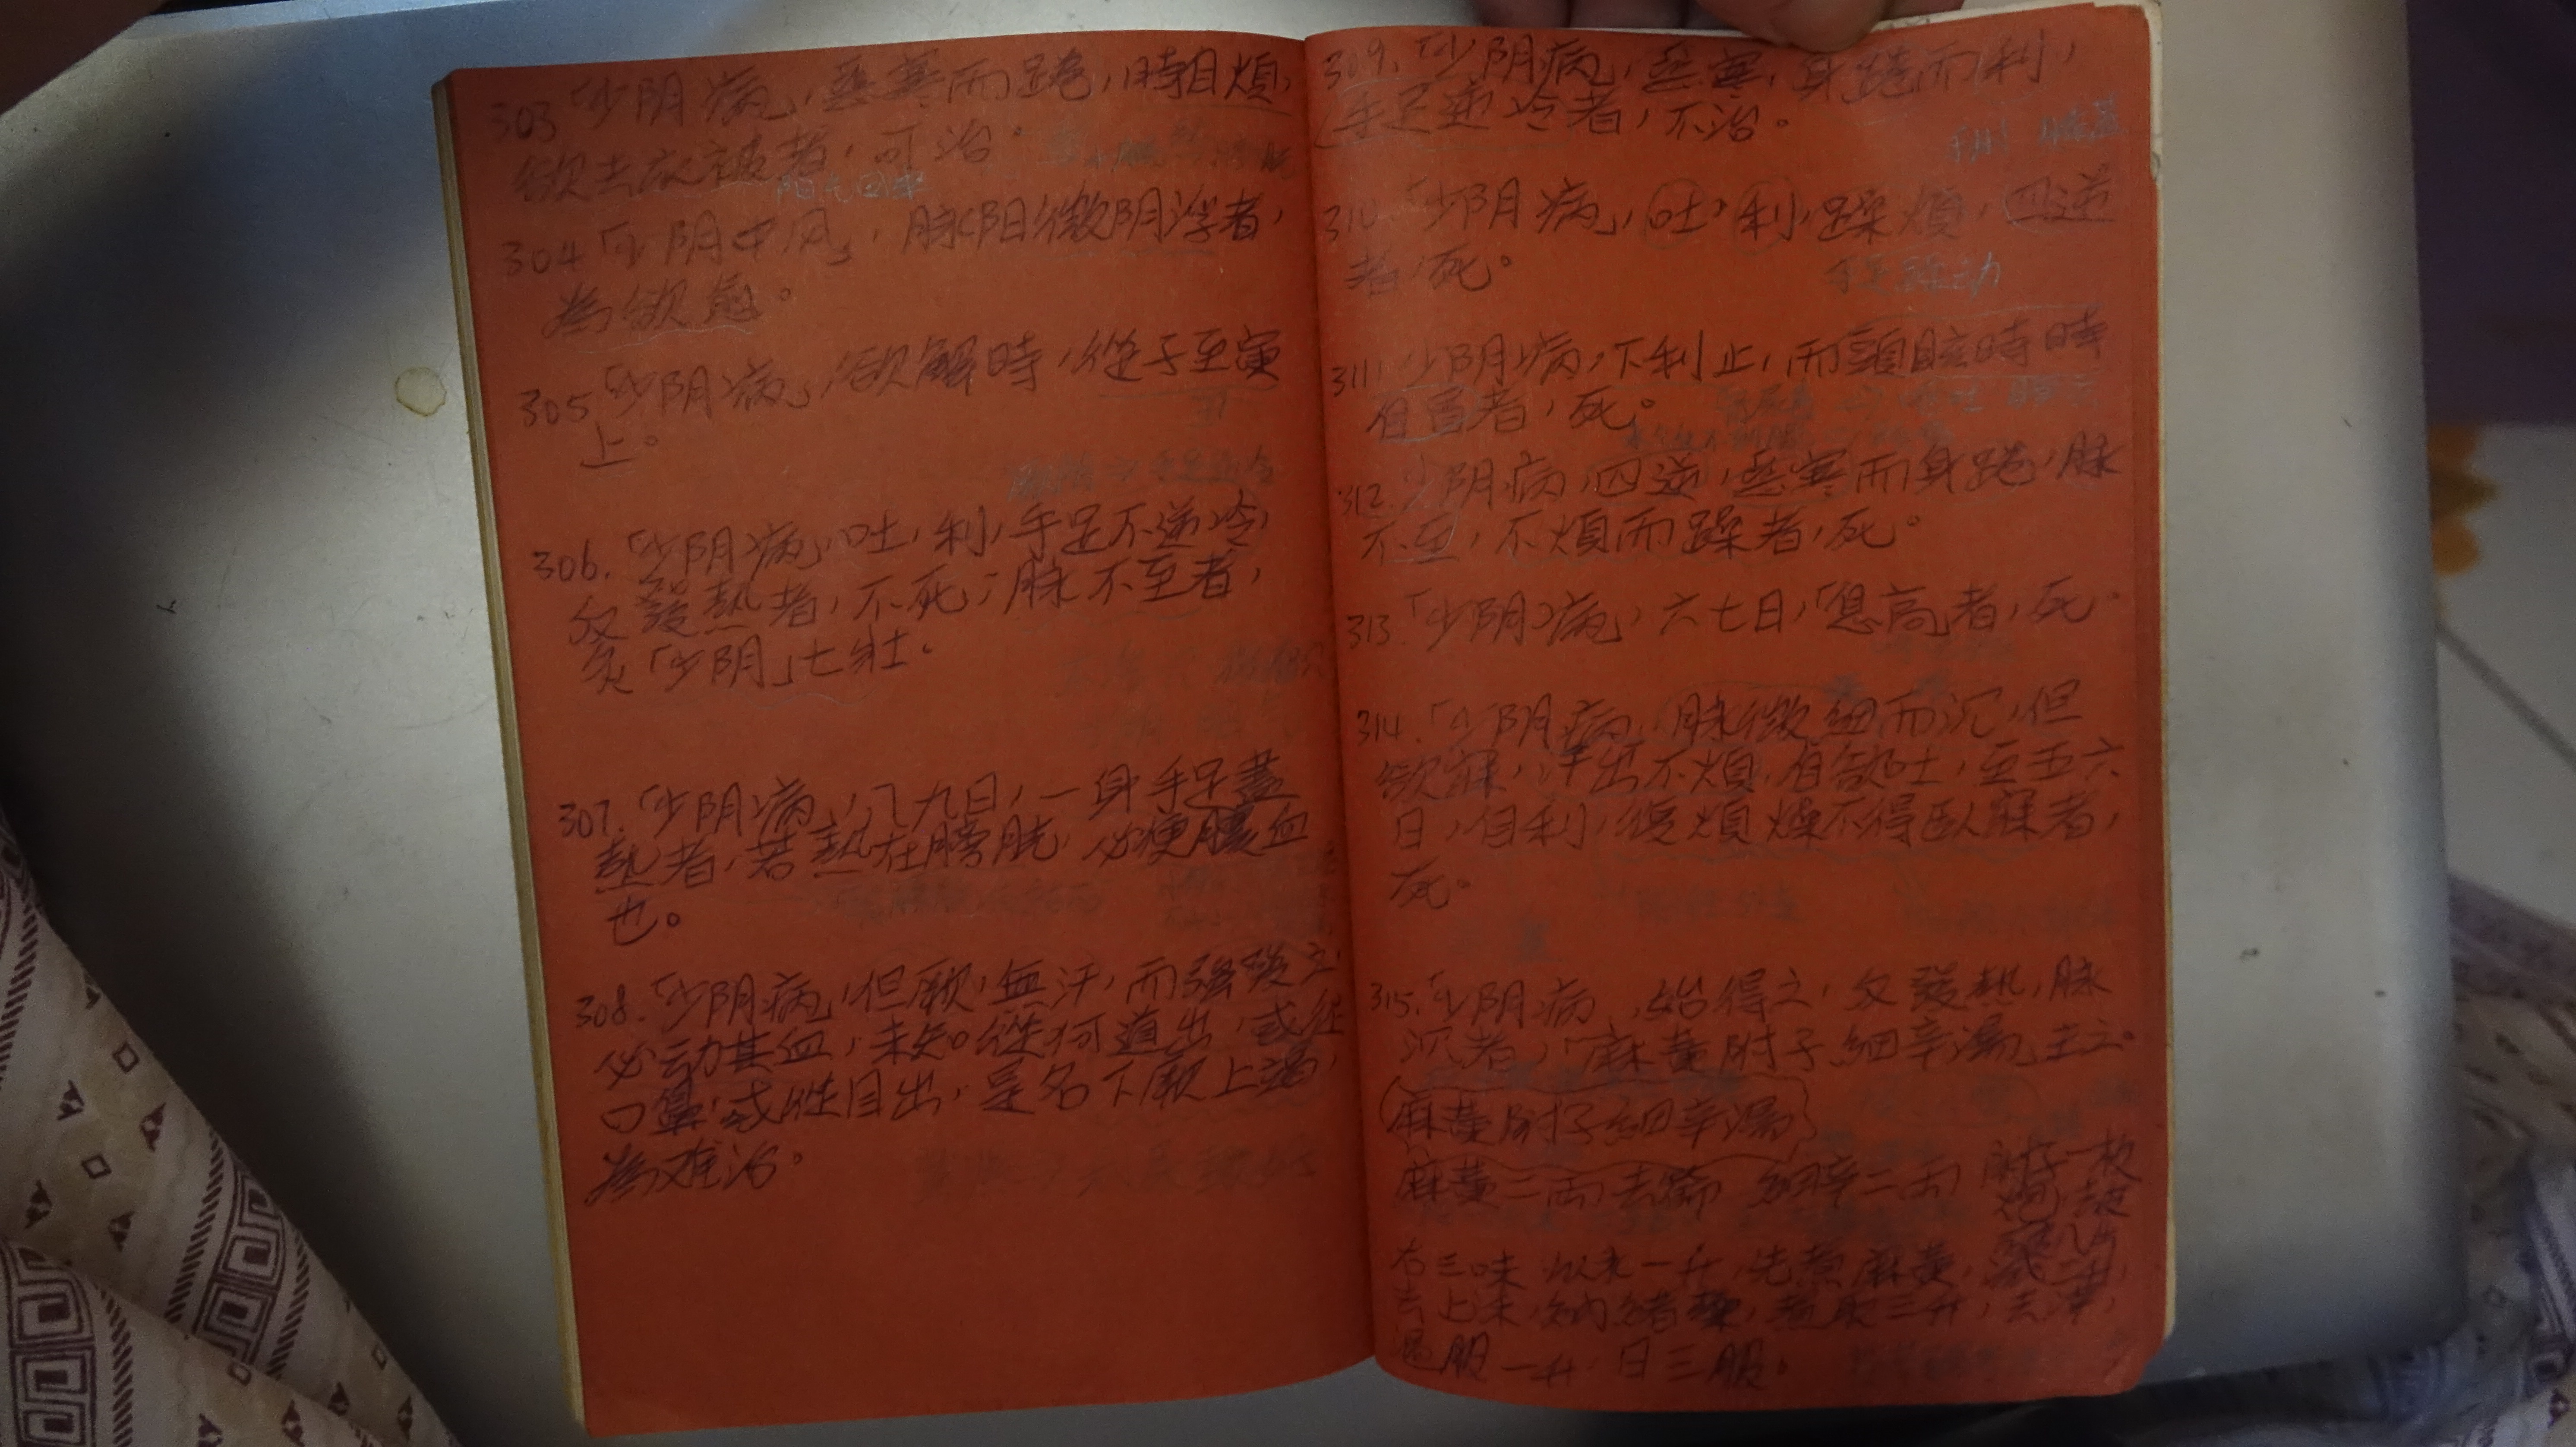 303「少阴病」,惡寒而踡,時自煩,
欲去衣被者,可治。
阳气回来
304「少阴中风」,脉阳微阴浮者,
為欲愈。
305「少阴病」,欲解時,從子至寅
上。
306.「少阴病」,吐,利,手足不逆冷,
反發熱者,不死;脉不至者,
灸「少阴」七壮。
307.「少阴病」,八九日,一身手足盡
熱者,若熱在膀胱,必便膿血
也。
308.「少阴病」,但厥,無汗,而強發之
必动其血,未知從何道出,或從
口鼻,或從目出,是名下厥上竭,
為难治。
309.「少阴病」,惡寒,身踡而利,
手足逆冷者,不治。
310.「少阴病」,吐,利,躁煩,四逆
者,死。
手足躁动
311.少阴病,下利止,而頭眩時時
自冒者,死。
312.少阴病,四逆,惡寒而身踡,脉
不至,不煩而躁者,死。
313.「少阴病」,六七日,「息高者,死.
314.「少阴病」,脉微細而沉,但
欲寐,汗出不煩,自欲吐,至五六
日,自利,復煩燥不得臥寐者,
死。
315.「少阴病」,始得之,反發熱,脉
沉者,「麻黄附子細辛湯」主之。
麻黄附子細辛湯
麻黄二兩去節 細辛二兩 附子一枚
炮 去皮
破八片
右三味 以水一升,先煮麻黄,減二升,
去上沫,納諸藥,煮取三升,去滓,
温服一升,日三服。